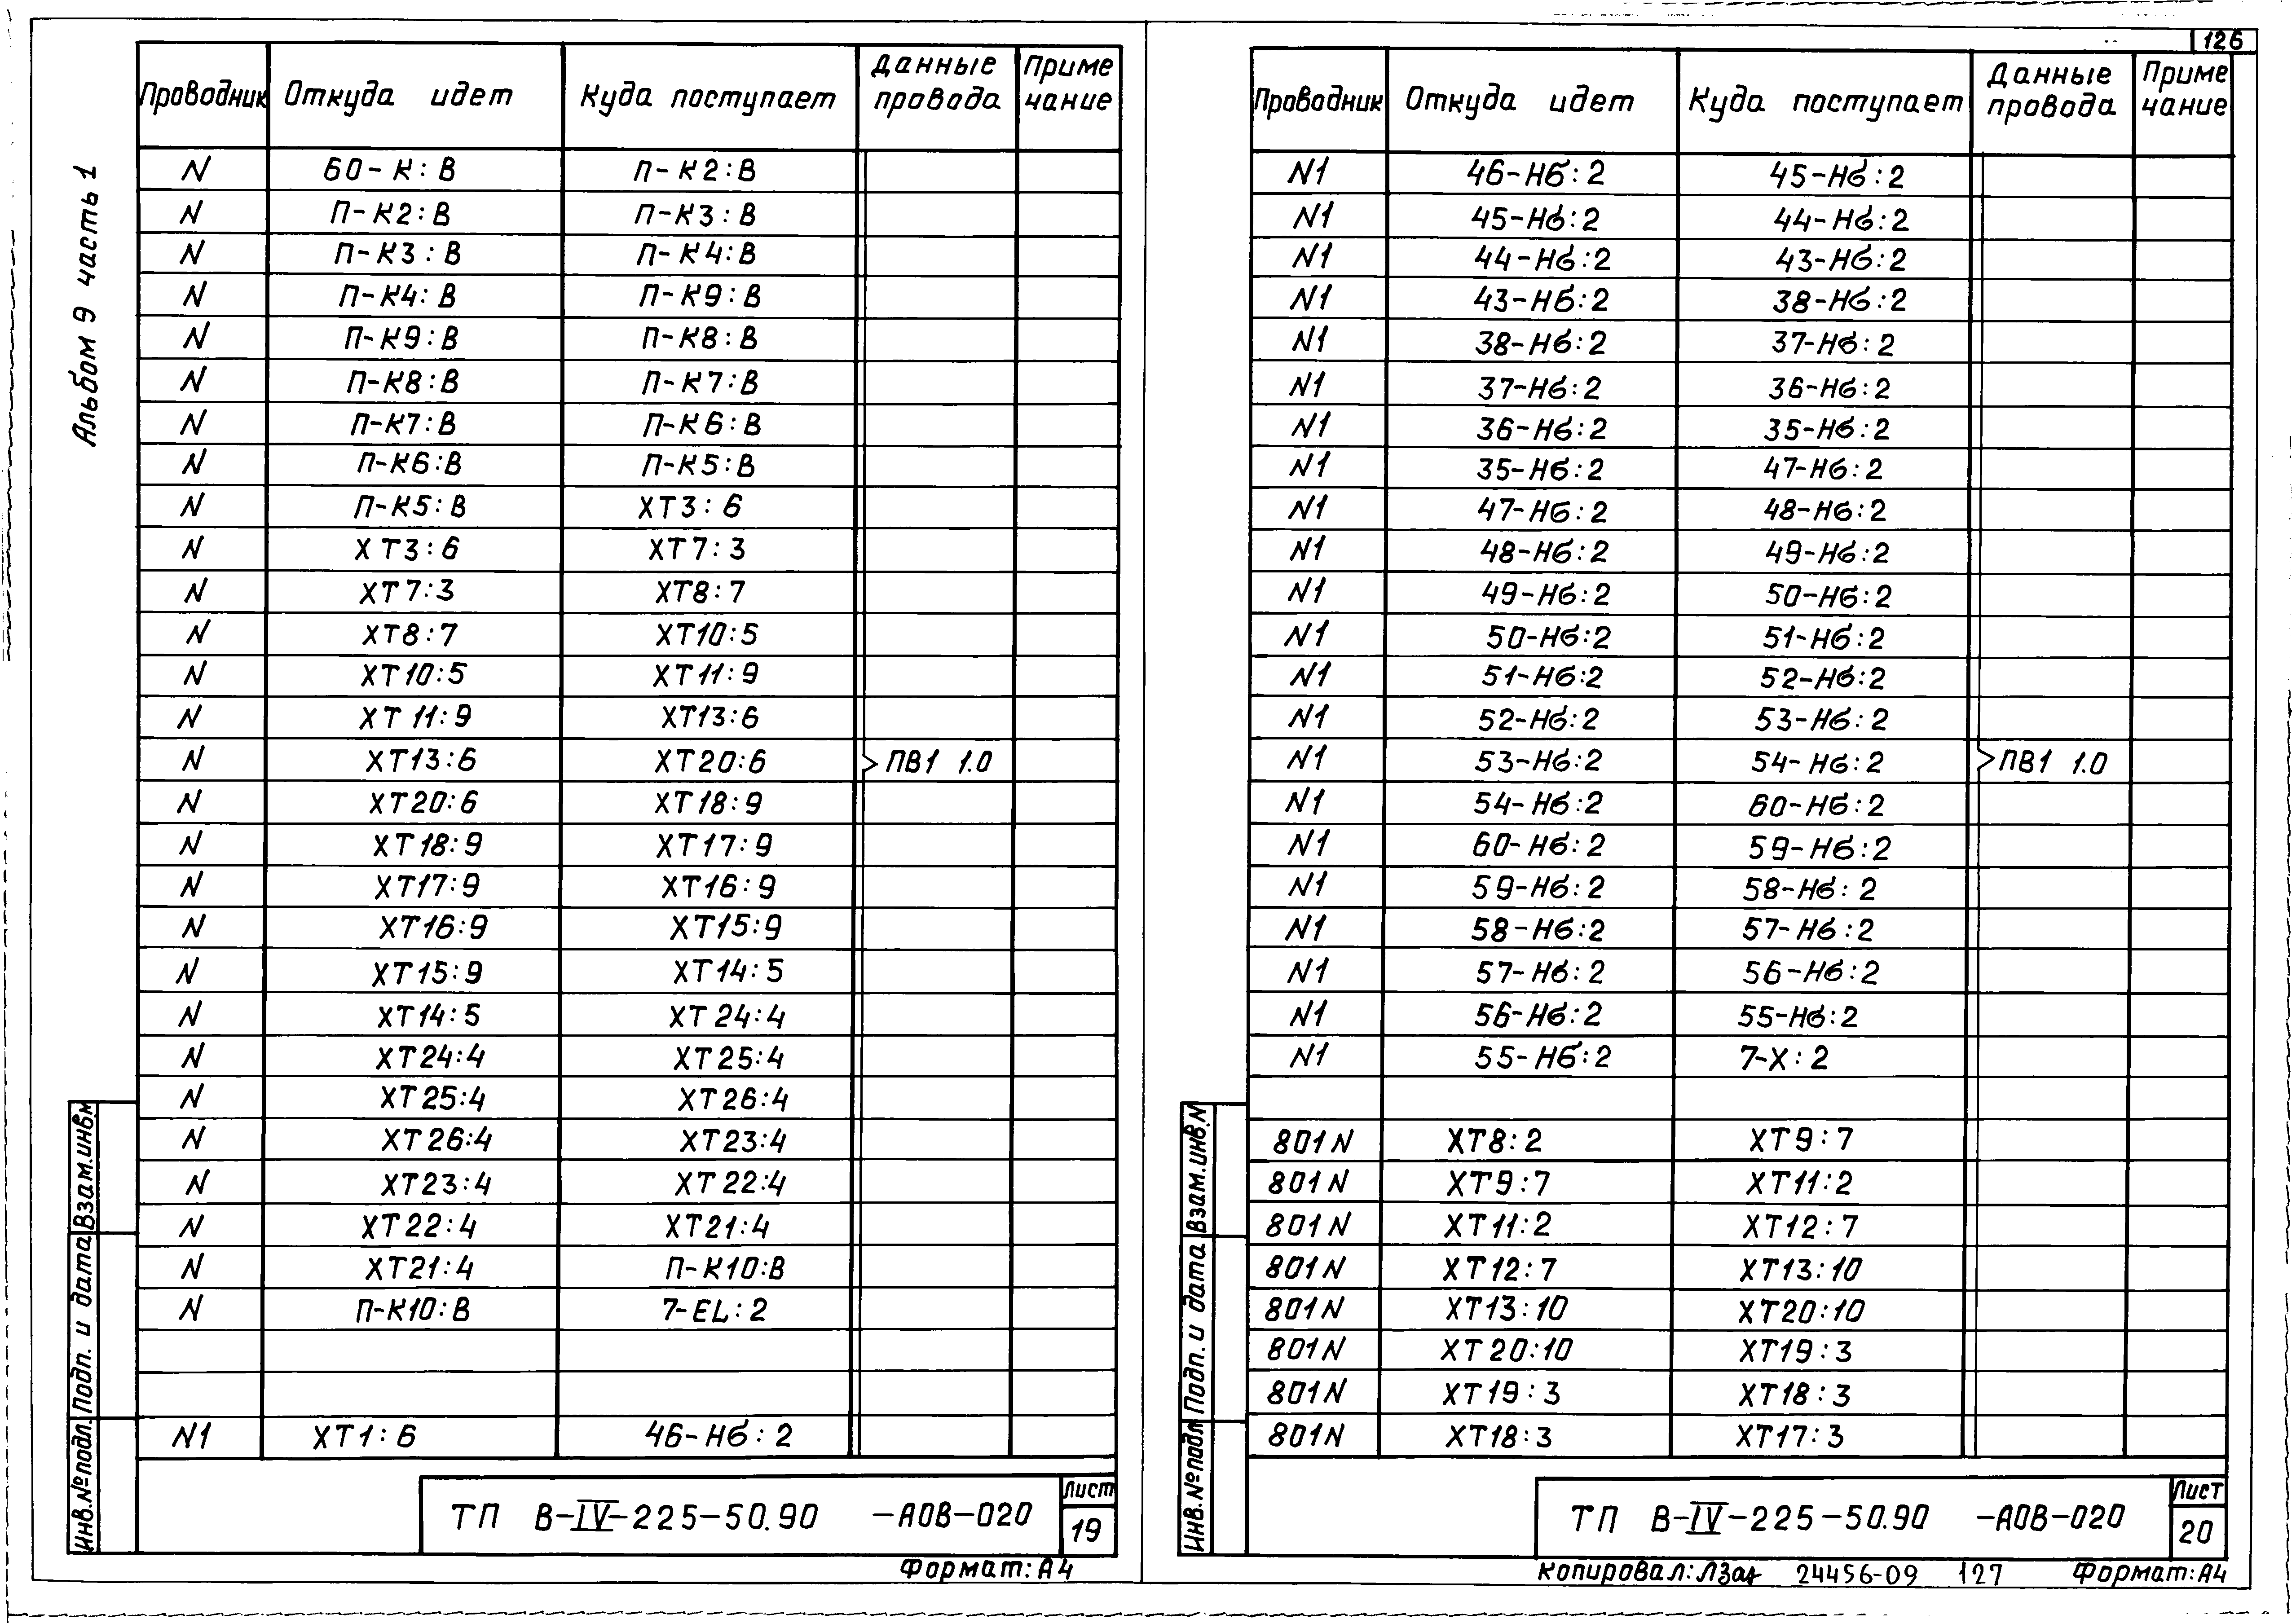 126
Альбом 9 часть 1
Проводник Откуда идет Куда поступает Данные провода Приме чание
N 60-К:В П-К2:В
N П-К2:В П-К3:В
N П-К3:В П-К4:В
N П-К4:В П-К9:В
N П-К9:В П-К8:В
N П-К8:В П-К7:В
N П-К7:В П-К6:В
N П-К6:В П-К5:В
N П-К5:В ХТ3:6
N ХТ3:6 ХТ7:3
N ХТ7:3 ХТ8:7
N ХТ8:7 ХТ10:5
N ХТ10:5 ХТ11:9
N ХТ11:9 ХТ13:6
N ХТ13:6 ХТ20:6 ПВ1 1.0
N ХТ20:6 ХТ18:9
N ХТ18:9 ХТ17:9
N ХТ17:9 ХТ16:9
N ХТ16:9 ХТ15:9
N ХТ15:9 ХТ14:5
N ХТ14:5 ХТ24:4
N ХТ24:4 ХТ25:4
N ХТ25:4 ХТ26:4
N ХТ26:4 ХТ23:4
N ХТ23:4 ХТ22:4
N ХТ22:4 ХТ21:4
N ХТ21:4 П-К10:В
N П-К10:В 7-EL:2
N1 ХТ1:6 46-Нб:2
Инв.№подл. Подп. и дата Взам.инв.N
ТП В-IV-225-50.90 -АОВ-020
Лист
19
Формат:А4
Проводник Откуда идет Куда поступает Данные провода Приме чание
N1 46-Нб:2 45-Нб:2
N1 45-Нб:2 44-Нб:2
N1 44-Нб:2 43-Нб:2
N1 43-Нб:2 38-Нб:2
N1 38-Нб:2 37-Нб:2
N1 37-Нб:2 36-Нб:2
N1 36-Нб:2 35-Нб:2
N1 35-Нб:2 47-Нб:2
N1 47-Нб:2 48-Нб:2
N1 48-Нб:2 49-Нб:2
N1 49-Нб:2 50-Нб:2
N1 50-Нб:2 51-Нб:2
N1 51-Нб:2 52-Нб:2
N1 52-Нб:2 53-Нб:2
N1 53-Нб:2 54-Нб:2 ПВ1 1.0
N1 54-Нб:2 60-Нб:2
N1 60-Нб:2 59-Нб:2
N1 59-Нб:2 58-Нб:2
N1 58-Нб:2 57-Нб:2
N1 57-Нб:2 56-Нб:2
N1 56-Нб:2 55-Нб:2
N1 55-Нб:2 7-Х:2
801N ХТ8:2 ХТ9:7
801N ХТ9:7 ХТ11:2
801N ХТ11:2 ХТ12:7
801N ХТ12:7 ХТ13:10
801N ХТ13:10 ХТ20:10
801N ХТ20:10 ХТ19:3
801N ХТ19:3 ХТ18:3
801N ХТ18:3 ХТ17:3
Инв.№подл Подп. и дата Взам.инв.N
ТП В-IV-225-50.90 -АОВ-020
Лист
20
Копировал: 24456-09 127 Формат:А4